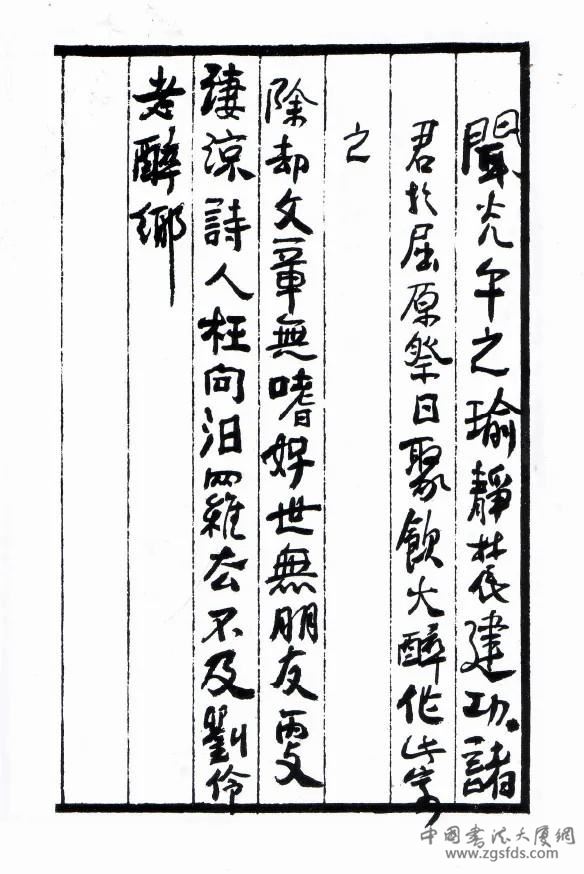 聞光午之瑜靜林伐建功諸
君於屈原祭日聚飲大醉作此寄
之
除却文章無嗜好世無朋友更
淒涼詩人枉向汨羅去不及劉伶
老醉鄉
中国书法大厦網
www.zgsfds.com